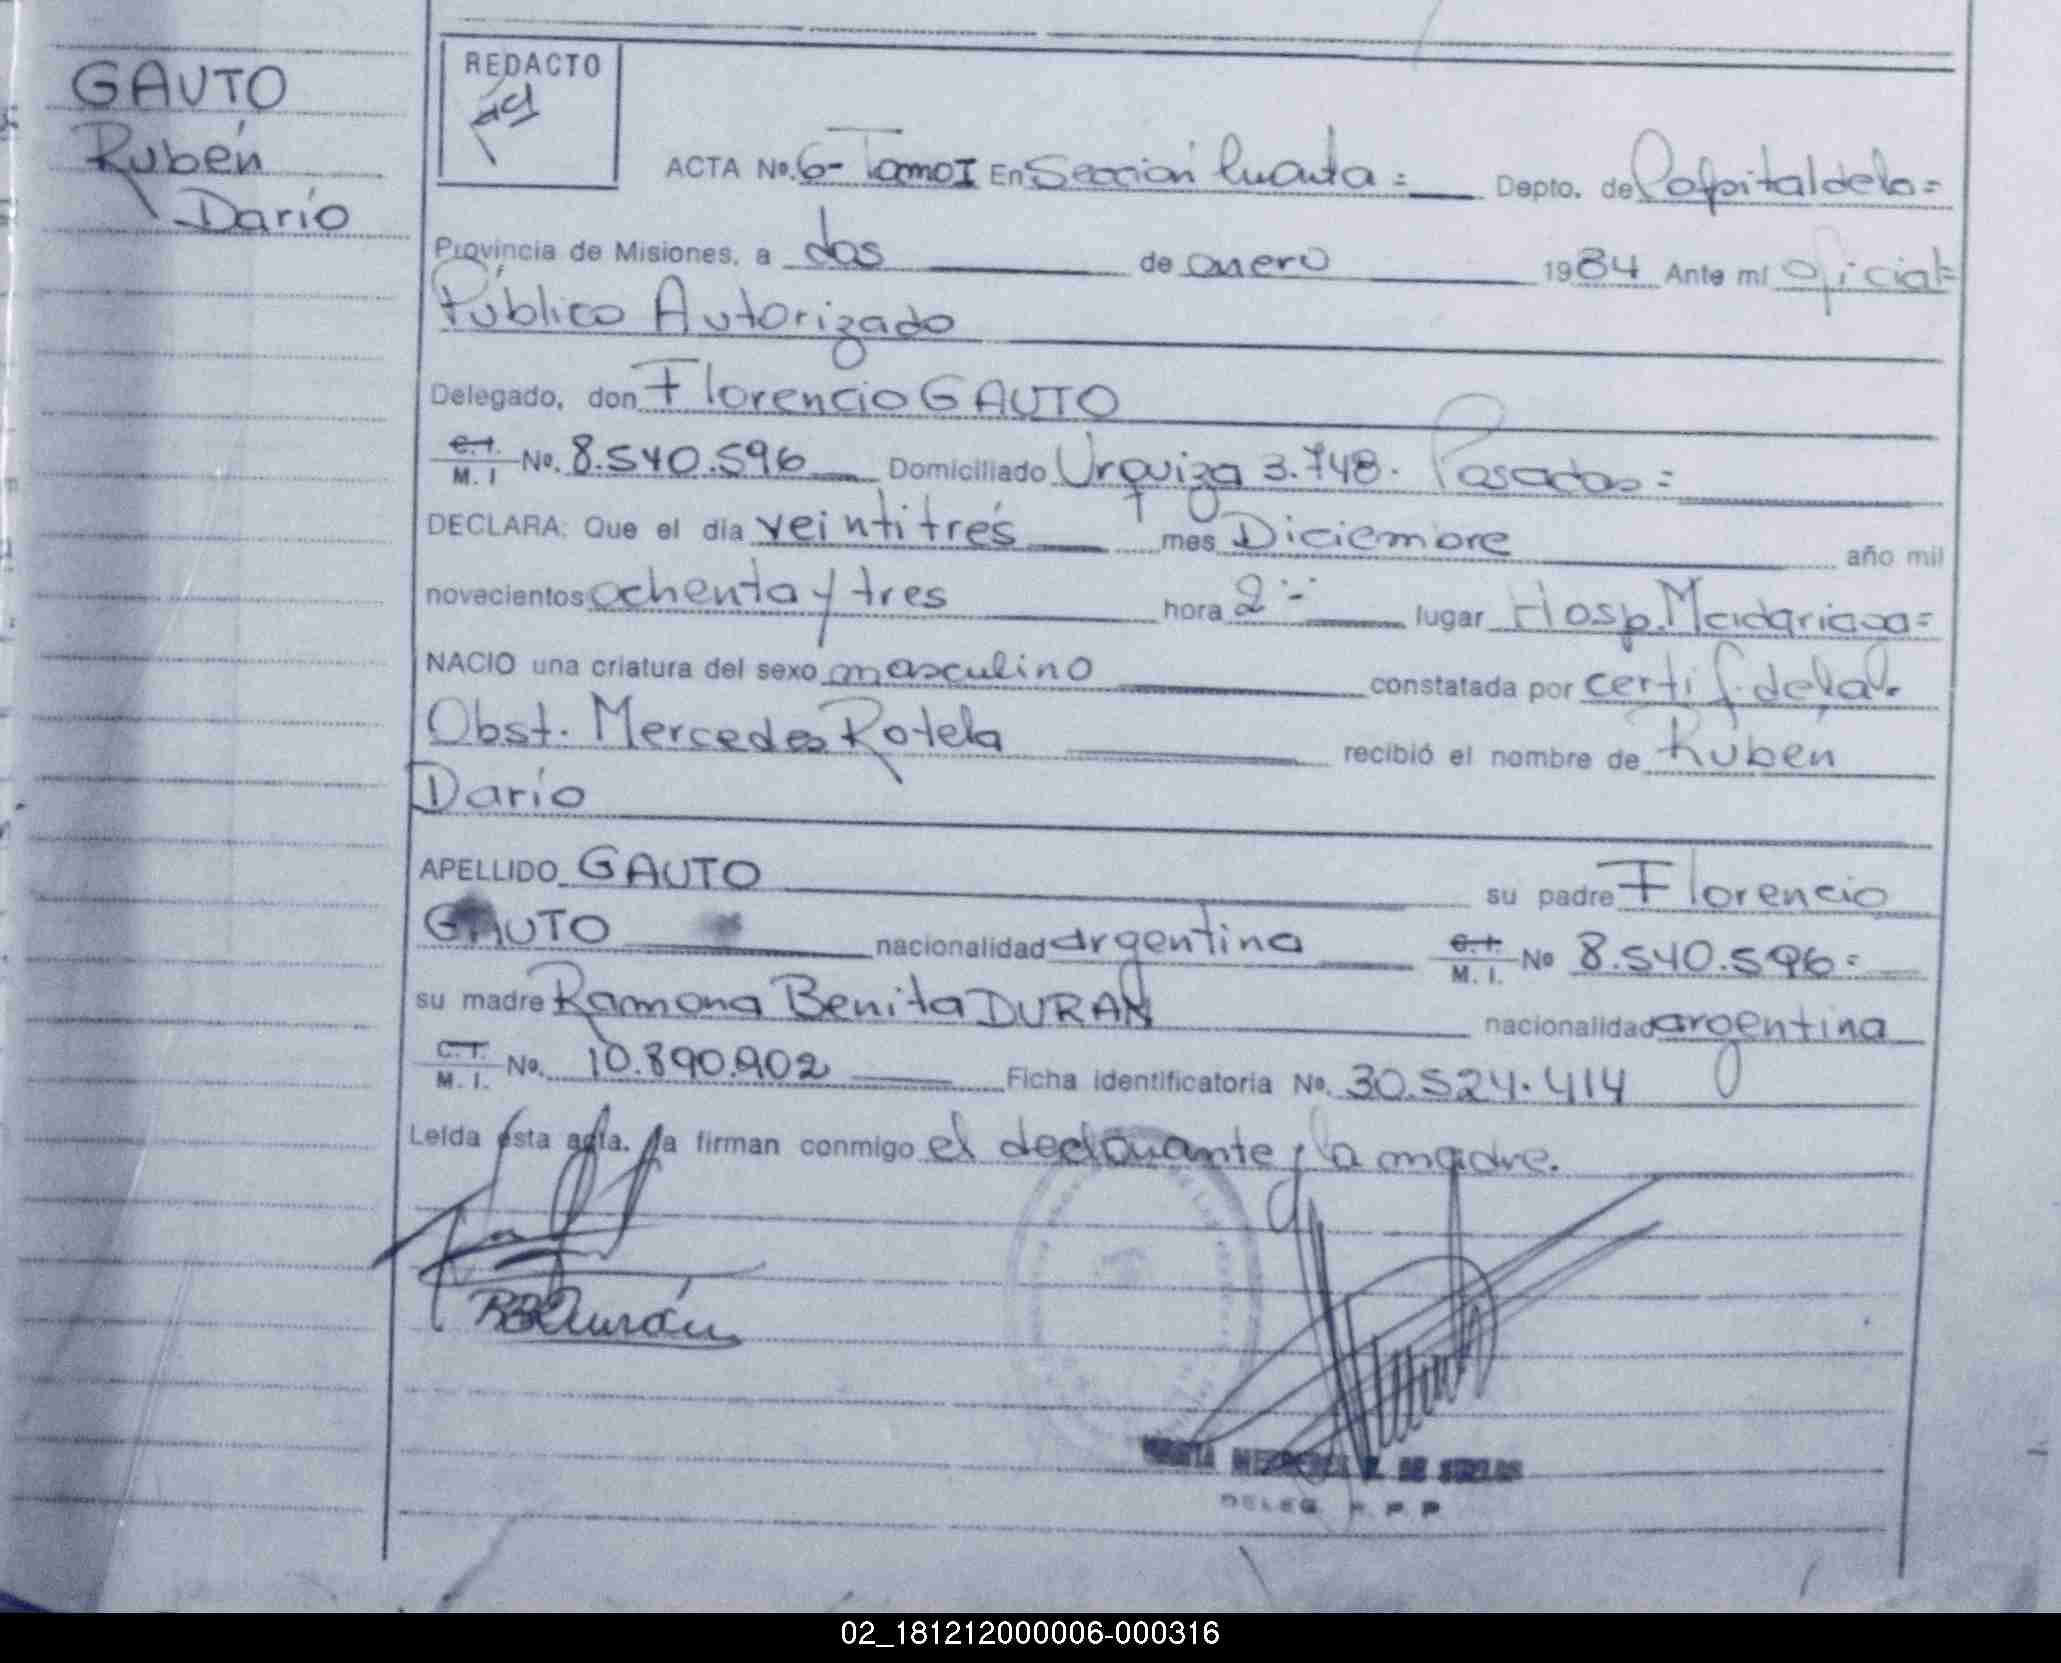 GAUTO
Rubén
Darío
REDACTO
ACTA No. 6- Tomo I En Sección Cuarta = Depto. de Capital de la =
Provincia de Misiones, a dos de enero 1984 Ante mí Oficial =
Público Autorizado
Delegado, don Florencio GAUTO
C.I. M. I No. 8.540.596 Domiciliado Urquiza 3.748. Posadas =
DECLARA: Que el día veintitrés mes Diciembre año mil
novecientos ochenta y tres hora 2 lugar Hosp. Madariaga =
NACIO una criatura del sexo masculino constatada por certif. de la
Obst. Mercedes Rotela recibió el nombre de Rubén
Darío
APELLIDO GAUTO su padre Florencio
GAUTO nacionalidad argentina C.I. M. I. No 8.540.596
su madre Ramona Benita DURAN nacionalidad argentina
C.I. M. I. No. 10.890.902 Ficha identificatoria No. 30.524.414
Leída ésta acta. la firman conmigo el declarante y la madre.
RBDurán
DELEG
02_181212000006-000316